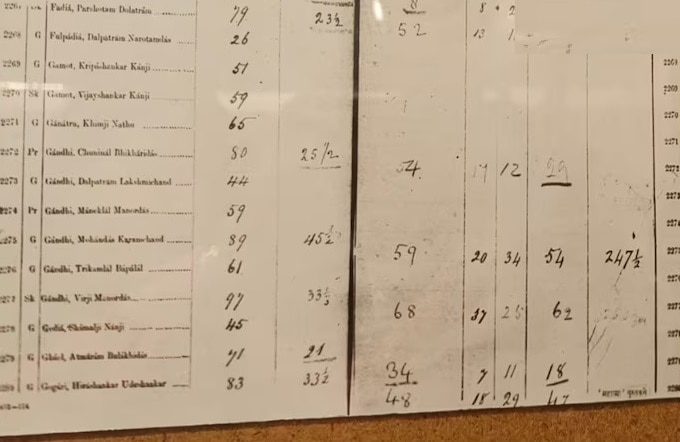 2267 Sk Fadiá, Parshotam Dolatrám 79 23½ 8 8
2268 G Fulpádiá, Dalpatrám Narotamdás 26 52 13 2268
2269 G Gamot, Krupáshankar Kánji 51 2269
2270 Sk Gamot, Vijayshankar Kánji 59 2270
2271 G Gánátra, Khimji Nathu 65 2271
2272 Pr Gándhi, Chunínál Bhikháridás 80 25½ 54 17 12 29 2272
2273 G Gándhi, Dalpatrám Lakshmichand 44
2274 Pr Gándhi, Máneklál Manordás 59
2275 G Gándhi, Mohandás Karamchand 89 45½ 59 20 34 54 247½
2276 G Gándhi, Trikamlál Bápálál 61
2277 Sk Gándhi, Virji Manordás 97 33½ 68 37 25 62
2278 G Gediá, Shámalji Nánji 45
2279 G Ghiel, Atmárám 71 21 34 7 11 18
2280 G Gogári, Hirashankar Udeshankar 83 33½ 48 18 29 47